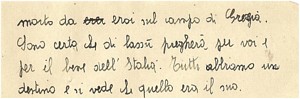 morto da eroi sul campo di Grecia.
Sono certa che di lassù pregherà per voi e
per il bene dell'Italia. Tutti abbiamo un
destino e si vede che quello era il suo.